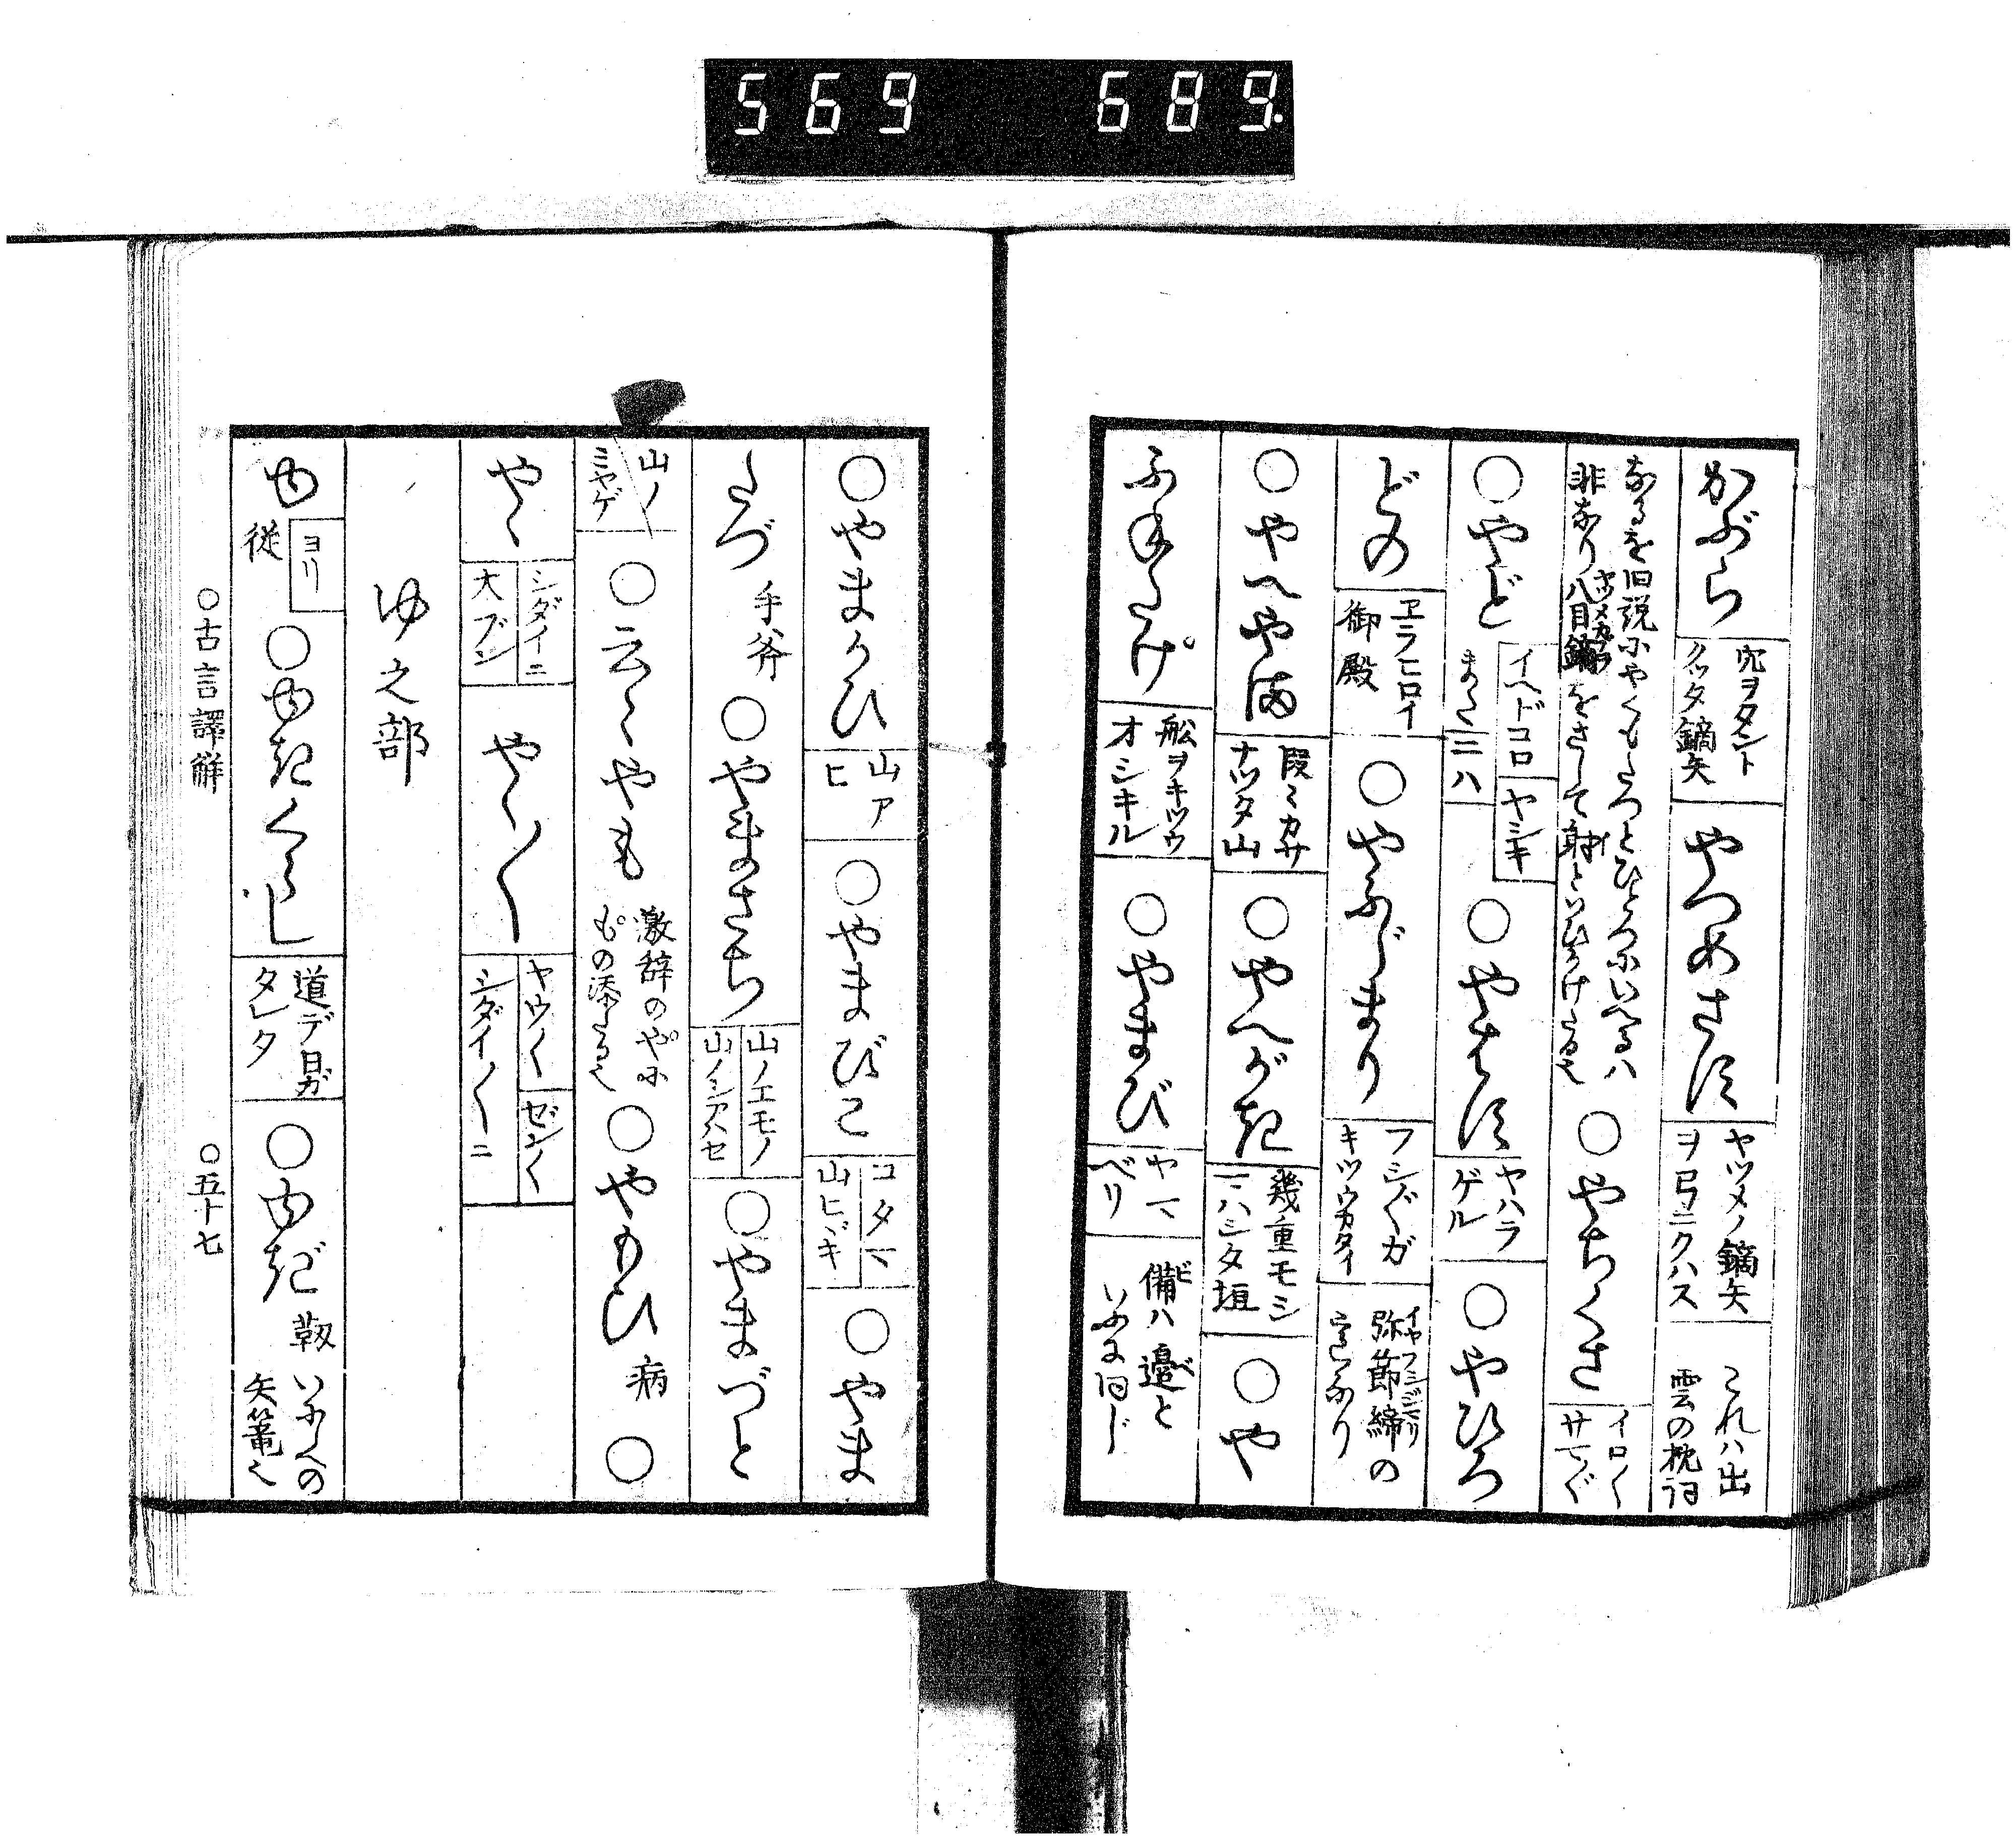 569 689.
かぶら 穴ヲタント クツタ鏑矢 やつめさす ヤツメノ鏑矢 ヲ弓ニクハス これハ出 雲の枕詞
なるを旧説にやくもたつとひとつにいへるハ
非なり八目鏑をさして射といひかけたる也 ○やちくさ イロ〱 サマ〲
○やど イヘドコロ ヤシキ また ニハ ○やはす ヤハラ ゲル ○やひろ
どの ヱラヒロイ 御殿 ○やふじまり フシ〲ガ キツウカタイ 弥節締の 意なり
○やへやま 段〻カサ ナツタ山 ○やへがき 幾重モシ マハシタ垣 ○や
ふねたけ 船ヲキツウ オシキル ○やまび ヤマ ベリ 備ハ邉と いふに同じ
○やまかひ 山ア ヒ ○やまびこ コタマ 山ヒヾキ ○やま
たづ 手斧 ○やまのさち 山ノエモノ 山ノシアハセ ○やまづと
山ノ ミヤゲ ○云〻やも 激辞のやに もの添たる也 ○やもひ 病 ○
やゝ シダイニ 大ブン やゝ〱 ヤウ〱 ゼン〱 シダイ〱ニ
ゆ之部
ゆ ヨリ 従 ○ゆきくらし 道デ日ガ クレタ ○ゆぎ 靫 いにしへの 矢篭也
○古言譯解 ○五十七